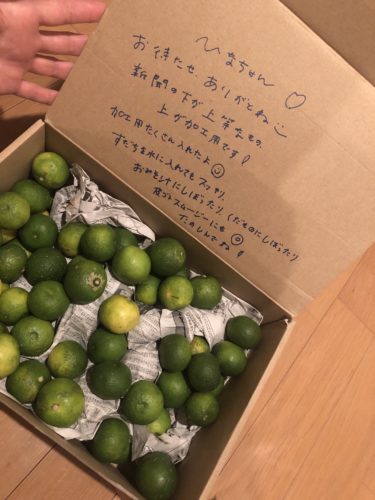 ひまちゃん ♡
お待たせ、ありがとね
新聞の下が上等なもの、
上が加工用です!
加工用たくさん入れたよ
すだちを水に入れてもスッキリ
おやもシナにしぼったり、くだものにしぼったり
皮ごとスムージーにも
たのしんでね!